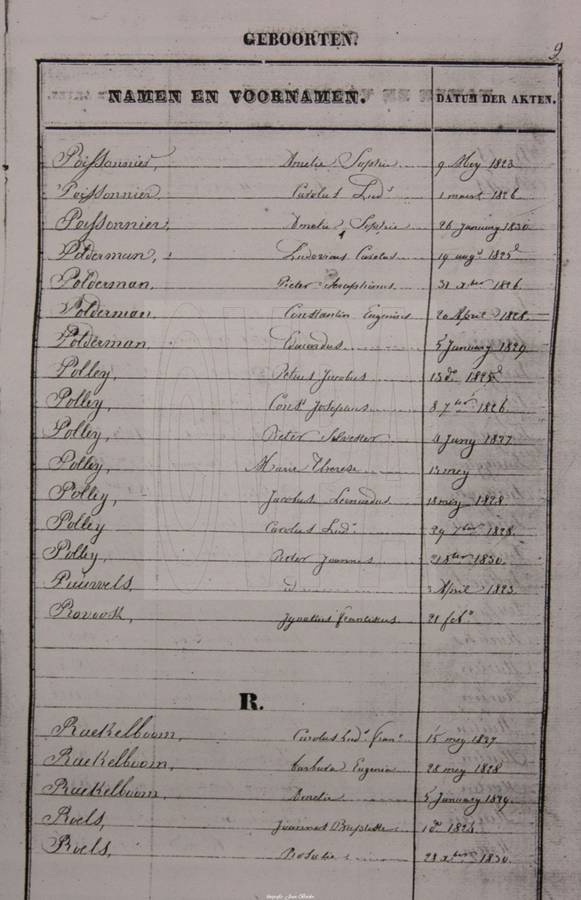 9
GEBOORTEN.
NAMEN EN VOORNAMEN. DATUM DER AKTEN.
Poissonnier, Amelie Sophie 9 Mey 1823
Poissonnier, Carolus Lud.s 1 maart 1826
Poissonnier, Amelie Sophie 26 January 1830
Polderman, Ludovicus Carolus 19 aug.s 1825
Polderman, Pieter Josephinus 31 xber 1826
Polderman, Constantin Eugenius 20 April 1828
Polderman, Eduardus 5 January 1829
Polley, Petrus Jacobus 13 d.o 1825
Polley, Const. Josephus 8 7ber 1826
Polley, Pieter Silvester Juny 1827
Polley, Marie Therese mey
Polley, Jacobus Leonardus 18 mey 1828
Polley Carolus Lud.s 29 7ber 1828
Polley, Pieter Joannes 21 8ber 1830
id April 1823
Provoost, Ignatius Franciskus 21 feb.
R.
Raekelboom, Carolus Lud.s Fran.s 15 mey 1827
Raekelboom, Barbara Eugenia 28 mey 1828
Raekelboom, Amelie 5 January 1829
Roels, Joannes Baptiste
Roels, Rosalie 28 xber 1830